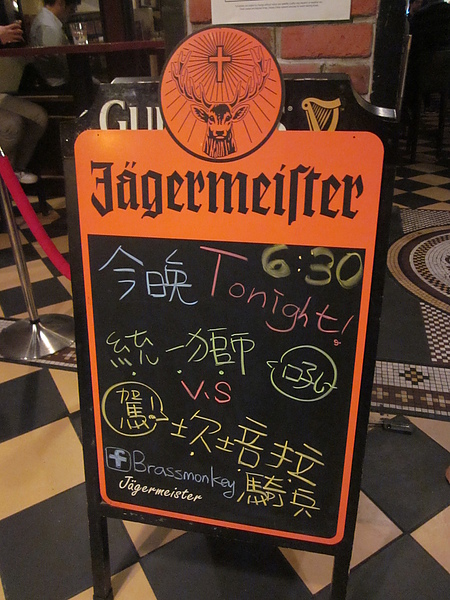 GU
Jägermeiſter
6:30
今晚 Tonight!
統一獅
吼
V.S
駕!
坎培拉
騎兵
f Brassmonkey
Jägermeister